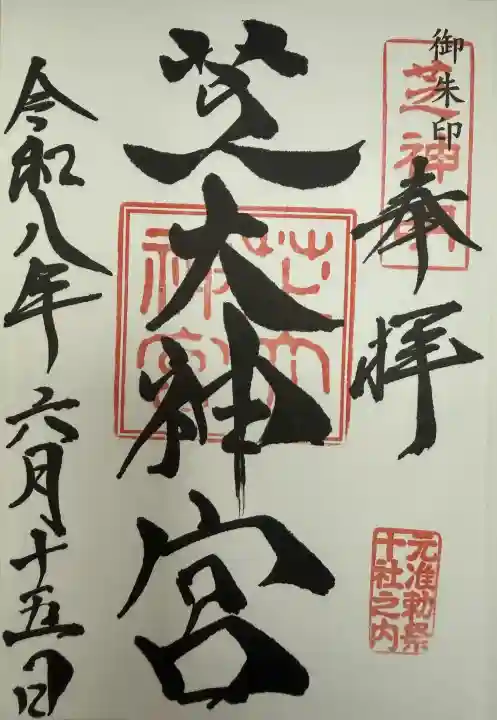 御朱印
芝神明
奉拝
元准勅祭
十社之内
芝大神宮
芝大
神宮
令和八年六月十五日